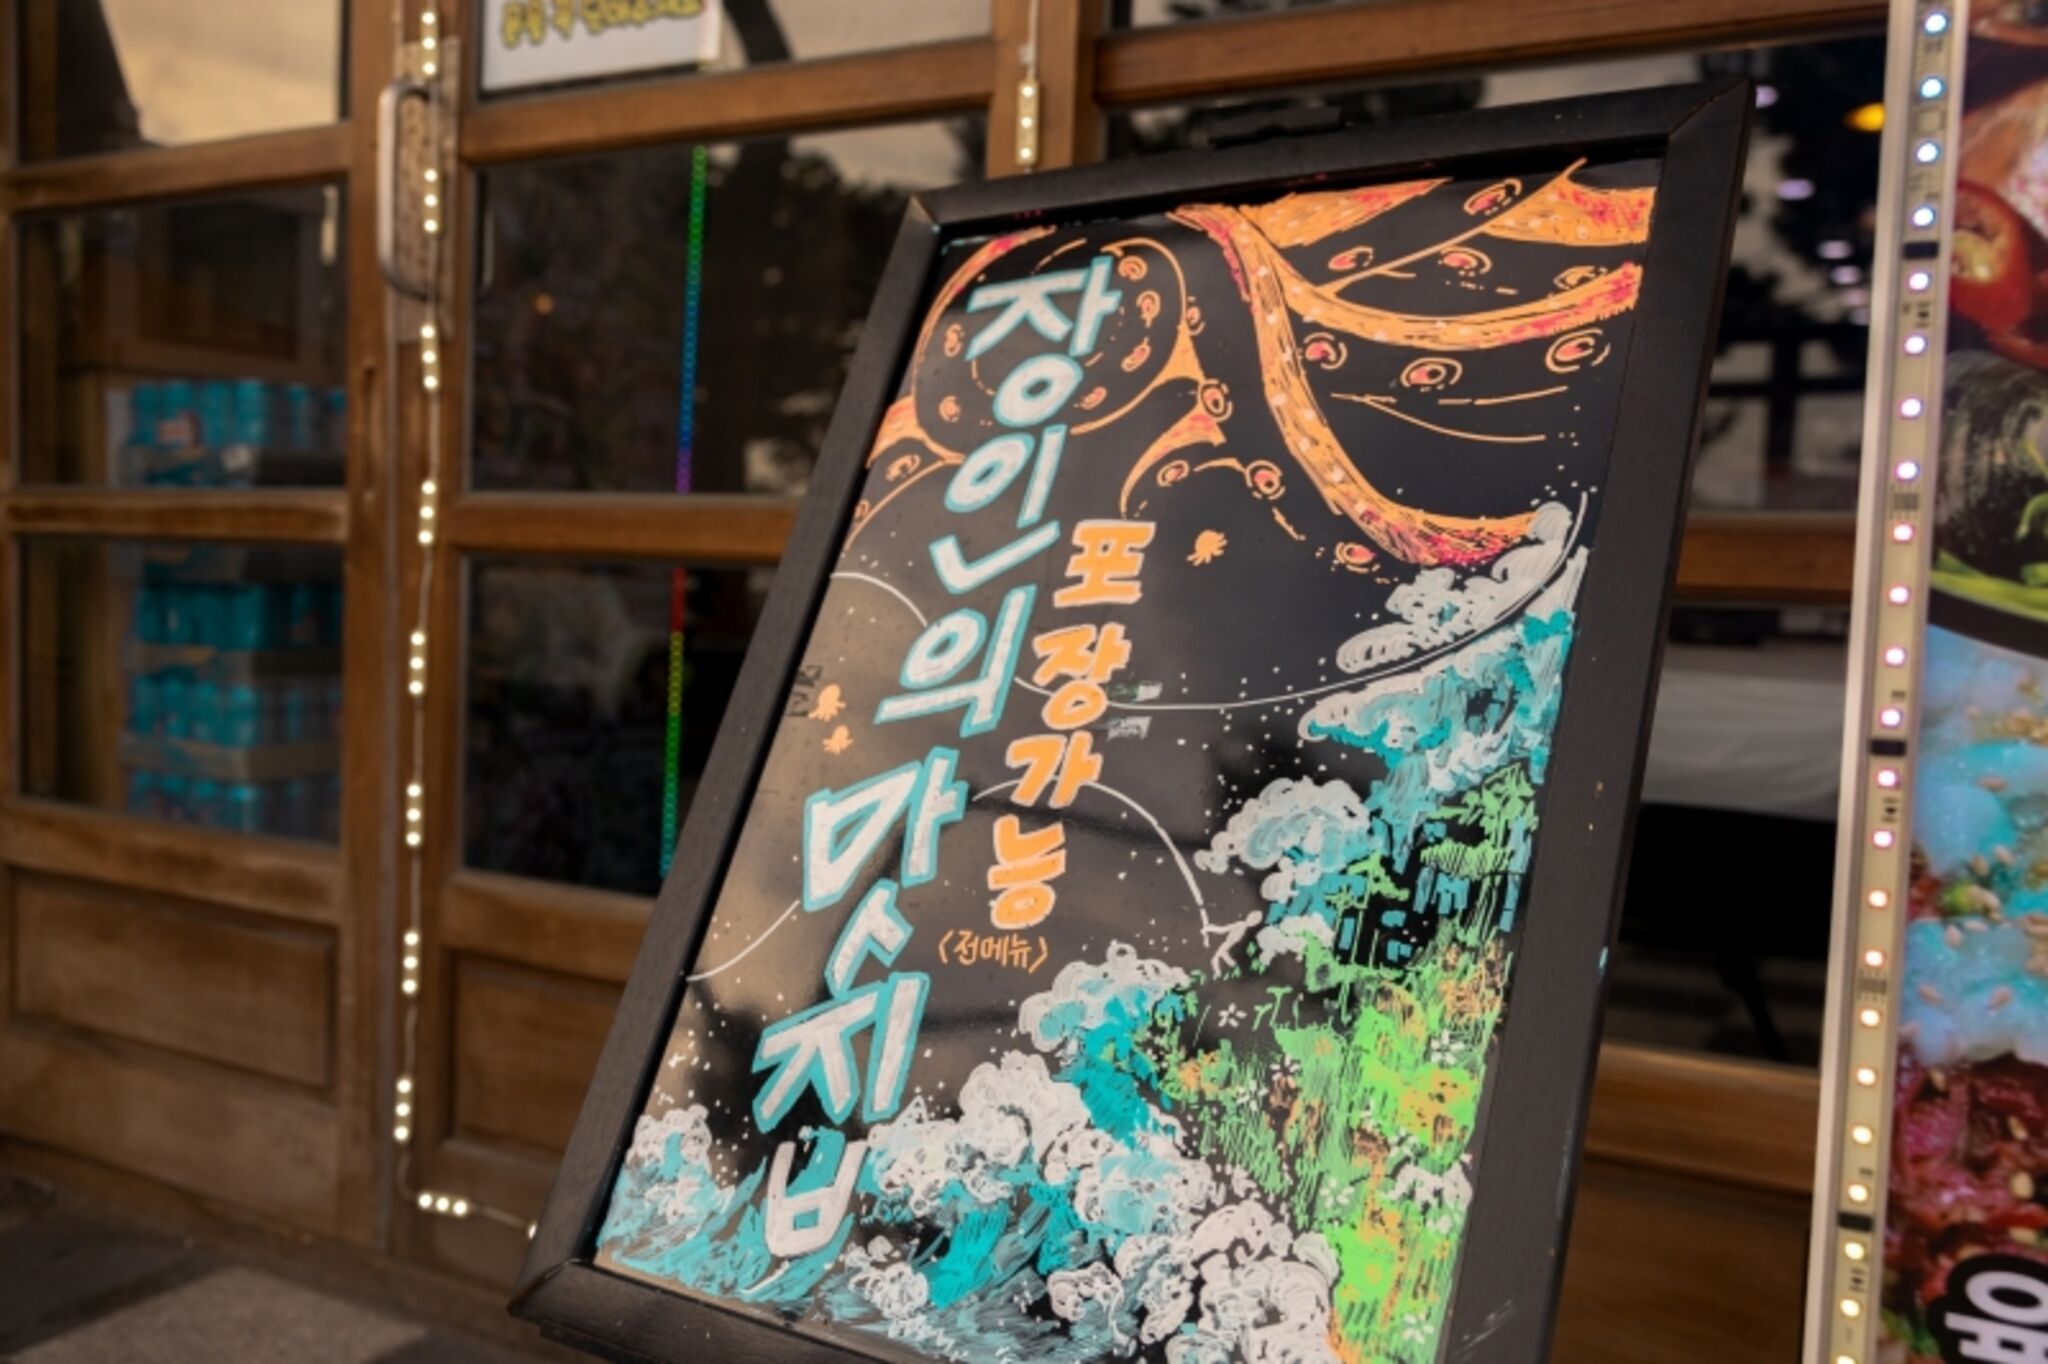 장인의 맛집
포장가능
<전메뉴>